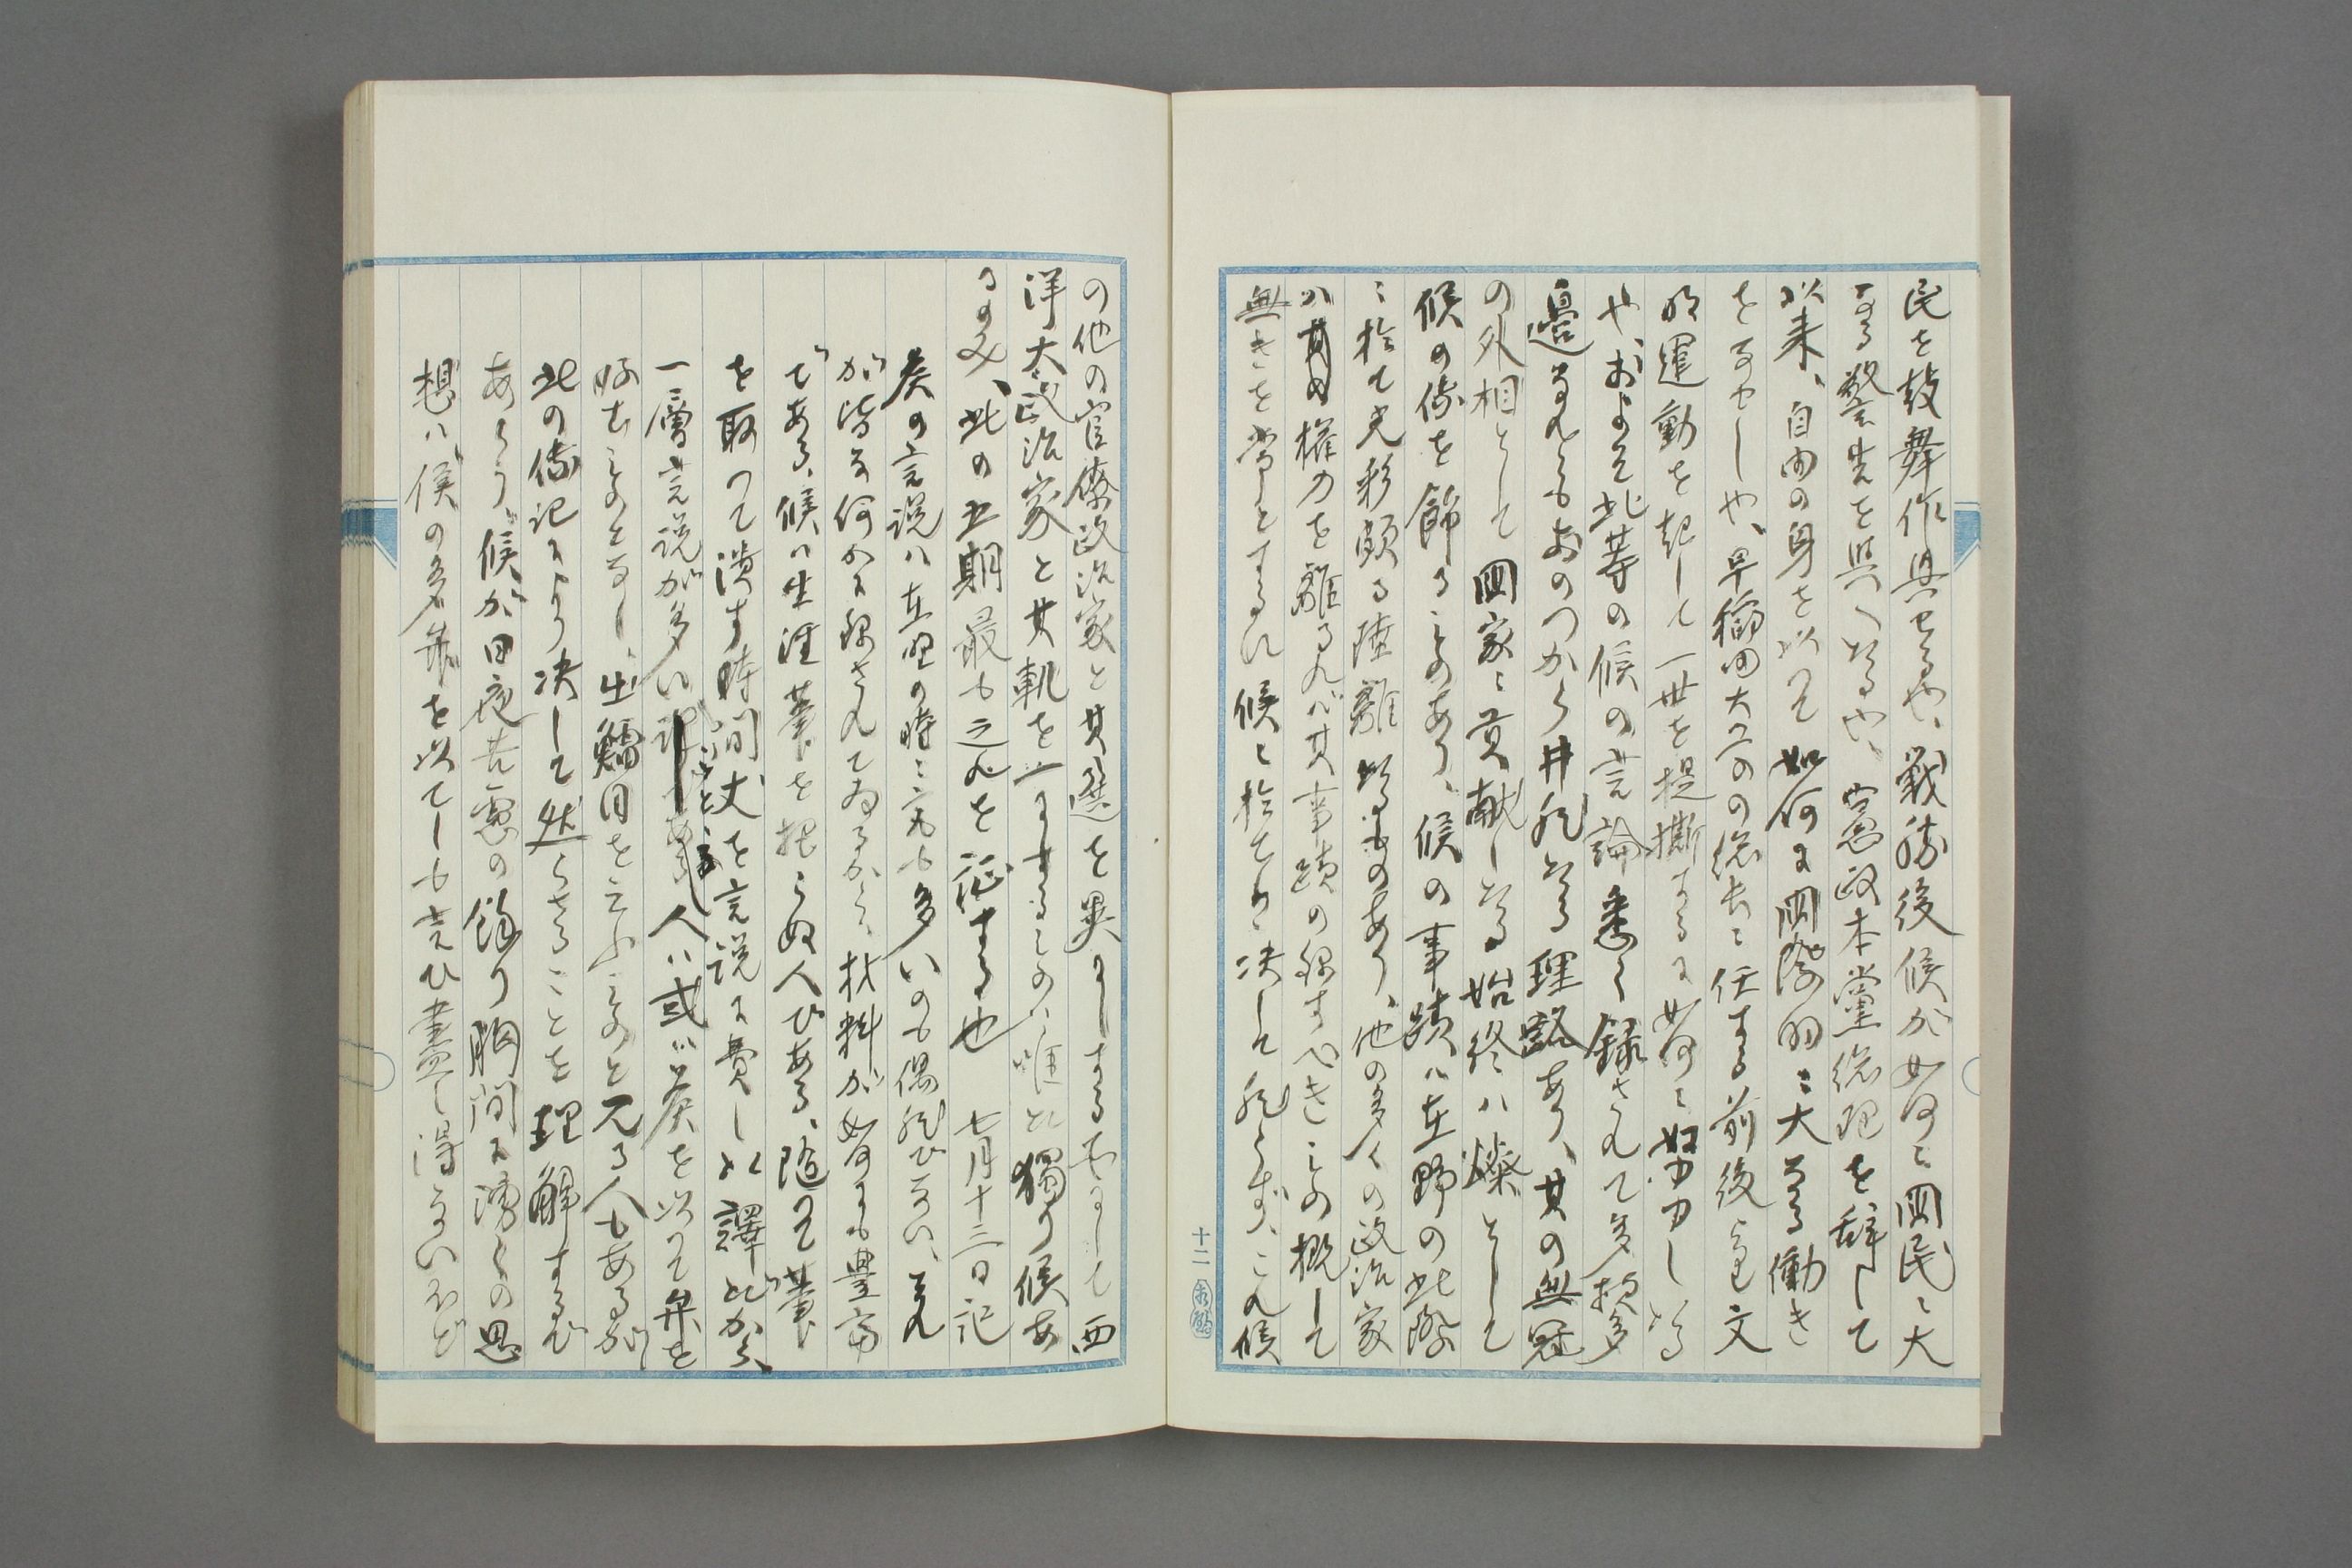 民を鼓舞作興せるや、戰勝後候が如何に国民に大
なる警告を與へたるや、憲政本黨総理を辞して
以来、自由の身を以つて如何に国際的に大なる働き
をなせしや、早稲田大学の総長に任する前後より文
明運動を起して一世を提撕するに如何に努力したる
や、およそ此等の候の言論悉く録されて多頗多
邉なれともおのつから井然たる理路あり、其の無冠
の外相として国家に貢献したる始終ハ燦として
候の伝を飾るものあり、候の事蹟ハ在野の此際
に於て光彩頗る陸離たるものあり、他の多くの政治家
ハ其の權力を離るれバ其事蹟の録すべきもの概して
無きを常とするに候に於てハ決して然らず、これ候
十二
の他の官僚政治家と其選を異にする所にして西
洋大政治家と其軌を一にするものハ唯た獨り候あ
るのみ、此の五期最も之れを証する也　七月十三日記
矦の言説ハ在野の時に尤も多いのも偶然でない、それ
が皆な何かに録されてゐるから、材料が如何にも豊富
である、候ハ生涯筆を把らぬ人である、随つて筆
を取つて潰す時間丈を言説に費した譯だから、
一層言説が多いといふ、人ハ或ハ矦を以つて弁を
好むものとなし、出鱈目を云ふものと見る人もあるが
此の伝記により决して然らさることを理解するで
あらう、候が日夜苦慮の餘り胸間に湧くの思
想ハ候の多弁を以てしも言ひ盡し得ないほど